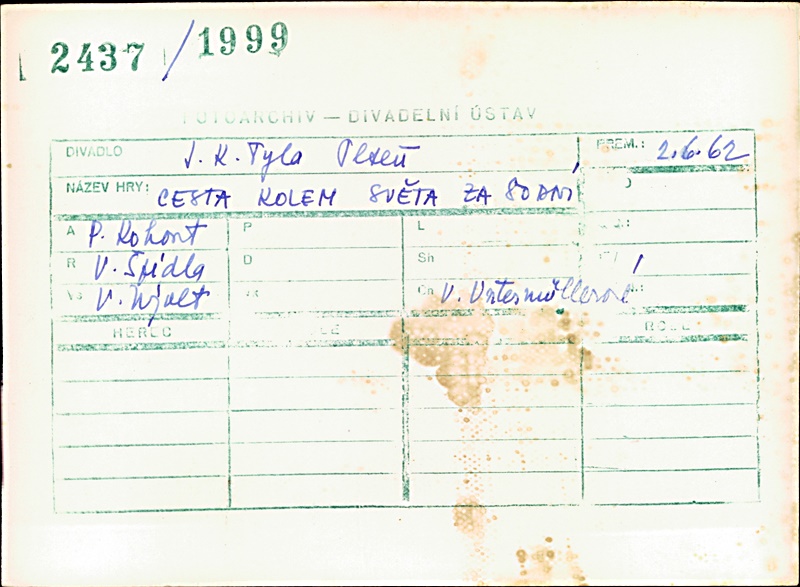 2437 / 1999
FOTOARCHIV — DIVADELNÍ ÚSTAV
DIVADLO J. K. Tyla Plzeň PREM.: 2.6.62
NÁZEV HRY: CESTA KOLEM SVĚTA ZA 80 DNÍ
A P. Kohout P L
R V. Špidla D Sh
V. Vňjalt Ch V. Untermüllerová
HEREC ROLE